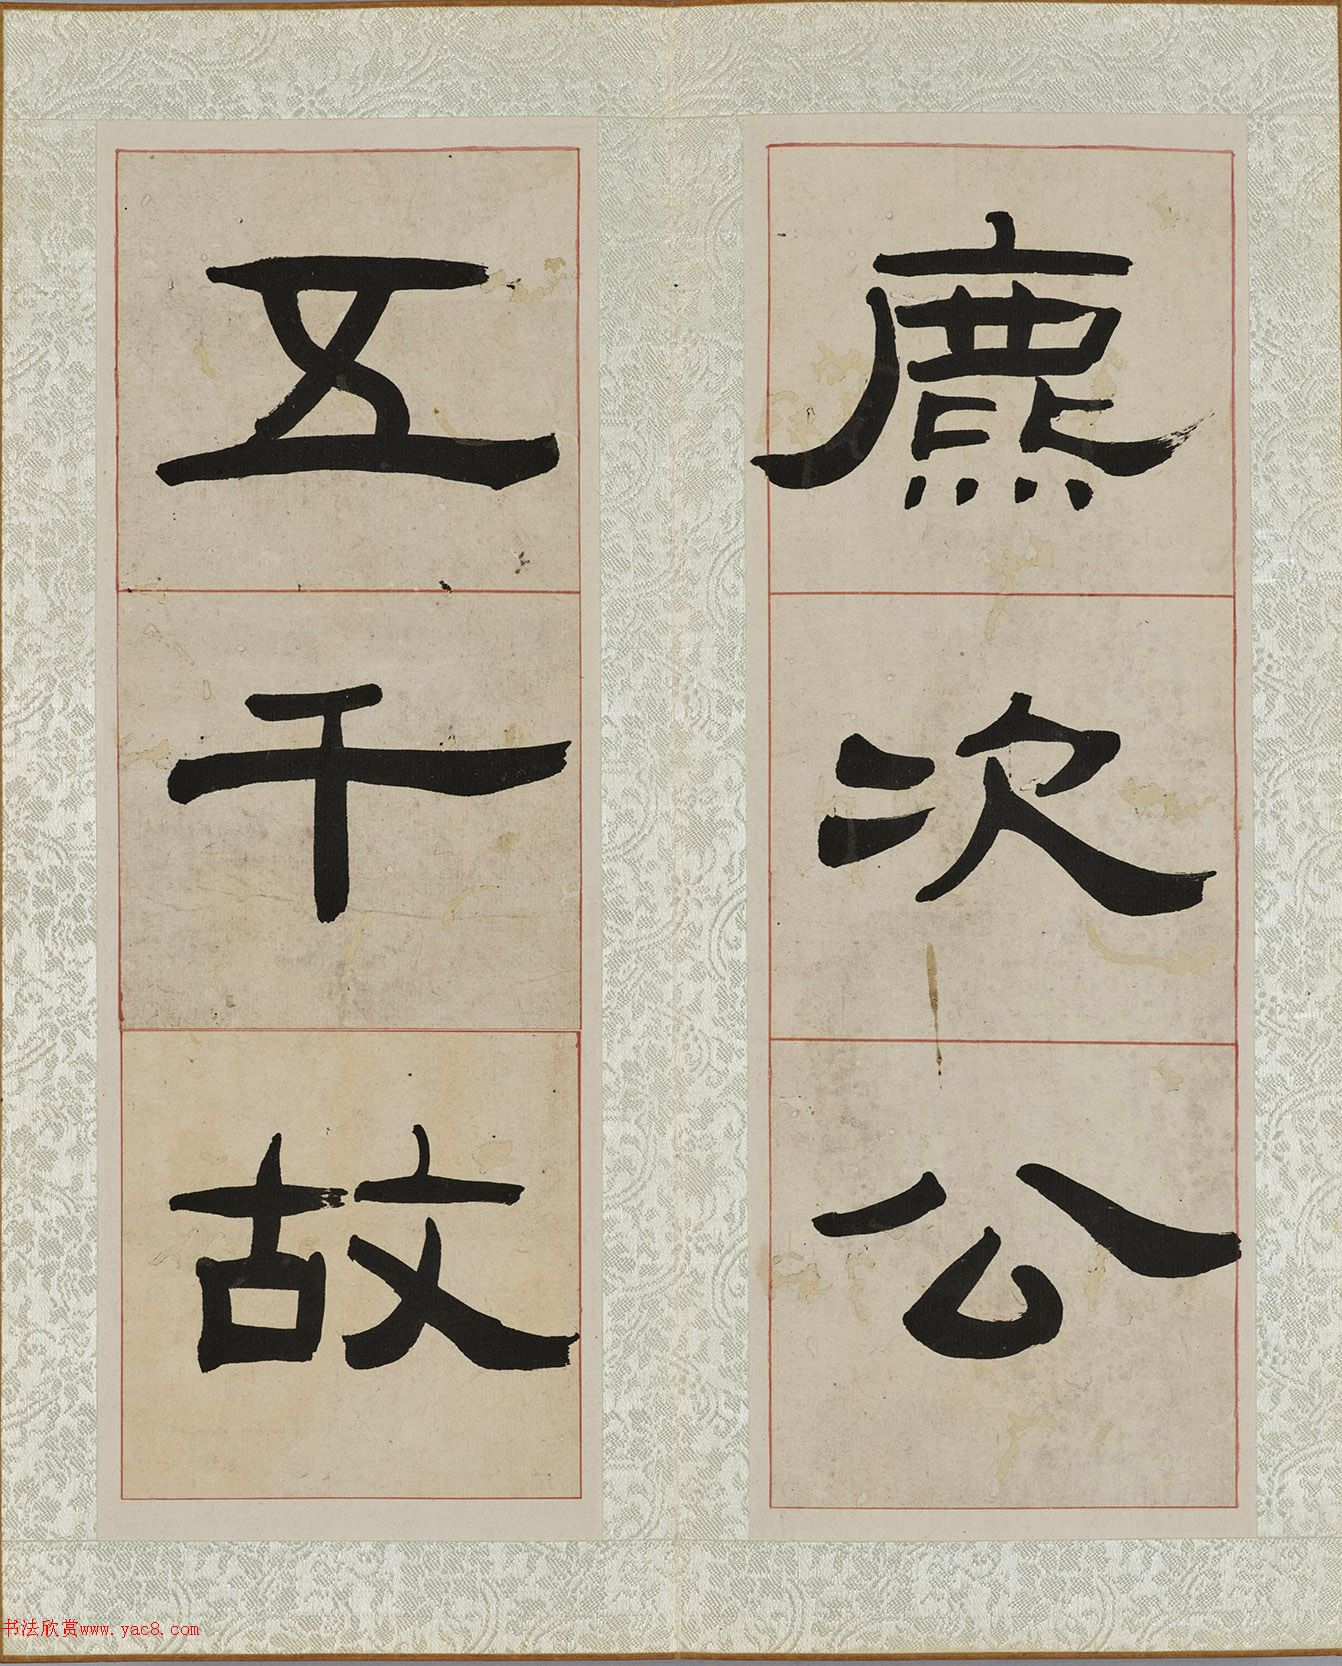 麃次公
五千故
书法欣赏www.yac8.com